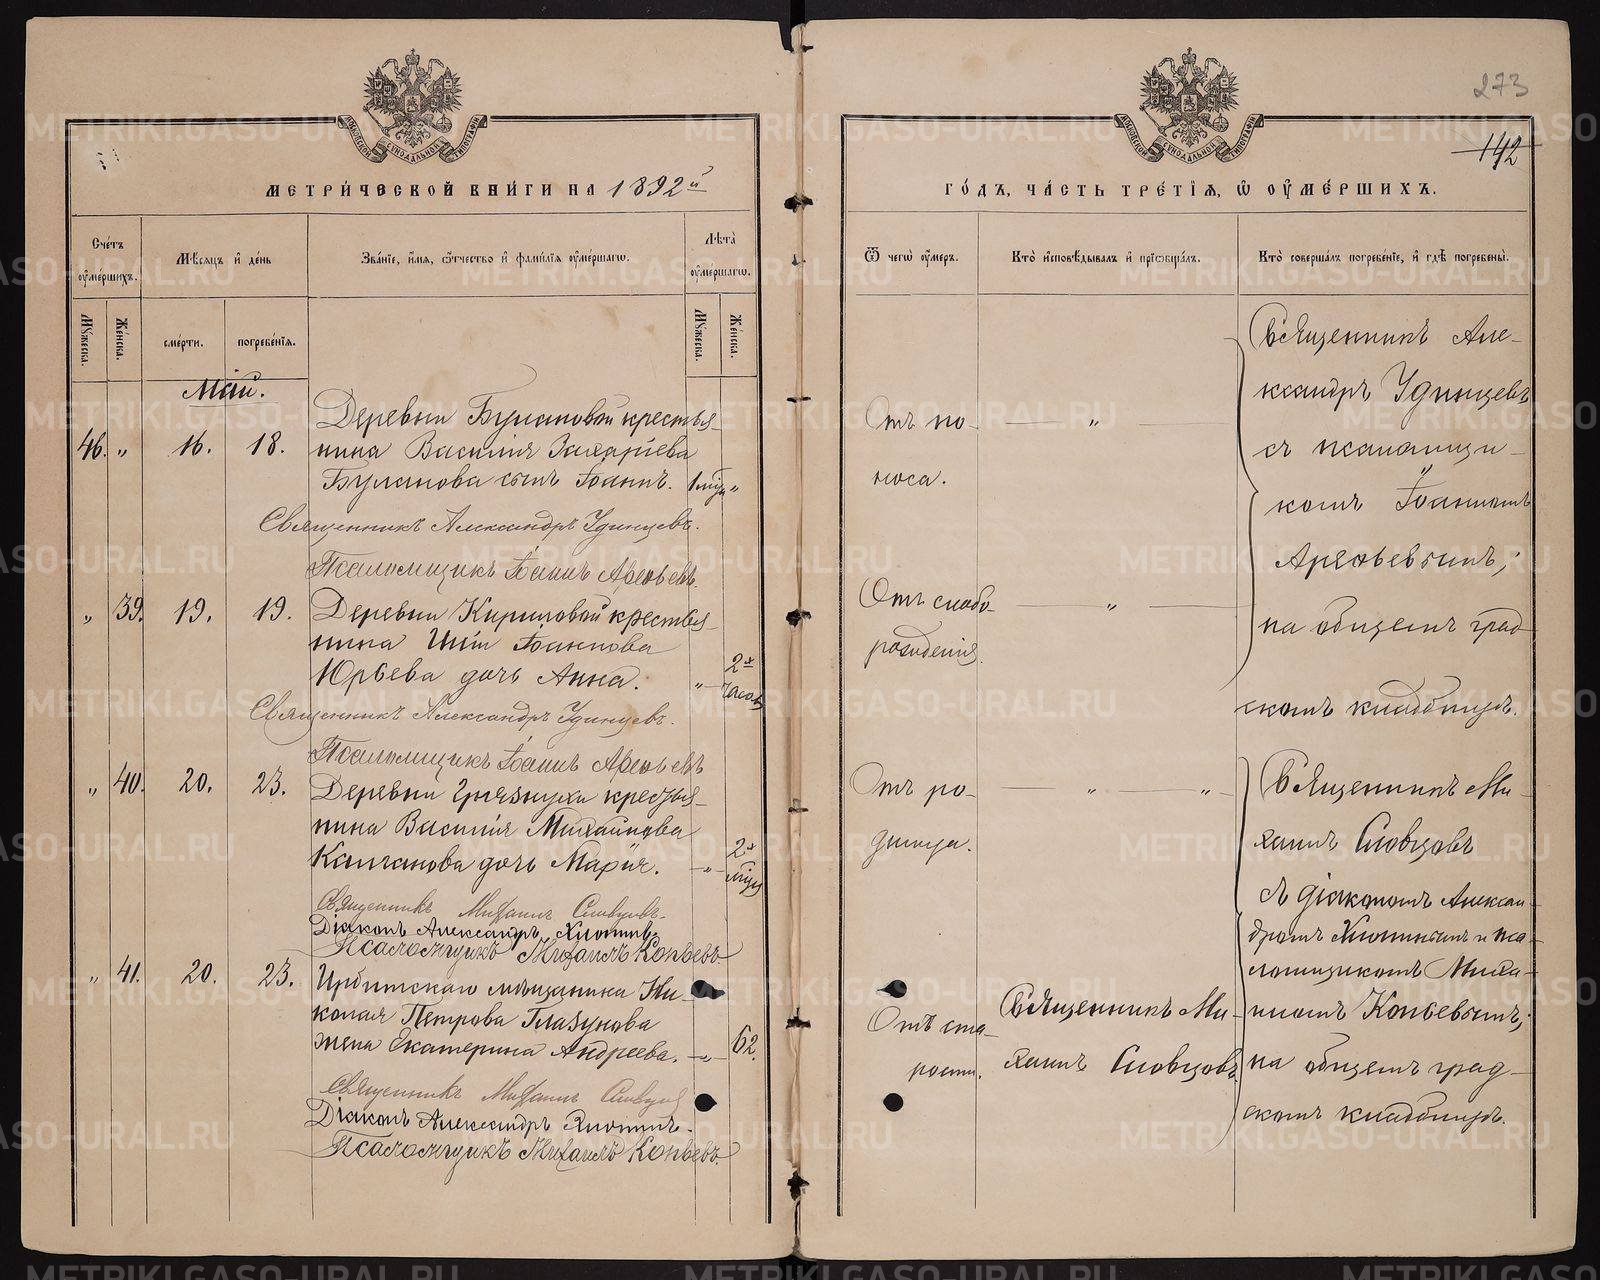 МЕТРИ́ЧЕСКОЙ КНИ́ГИ НА 1892й
Сче́тъ оу҆ме́ршихъ.
Мѣ́сяцъ и҆ де́нь
Зва́нїе, и҆́мя, ѻ҆́тчество и҆ фами́лїя оу҆ме́ршагѡ.
Лѣ́та оу҆ме́ршагѡ.
Му́жеска.
Же́нска.
сме́рти.
погребе́нїя.
Му́жеска.
Же́нска.
Май.
46. „ 16. 18.
Деревни Булановой крестья-
нина Василія Захаріева
Буланова сынъ Іоаннъ. 1 мѣс. „
Священникъ Александръ Удинцевъ.
Псаломщикъ Іоаннъ Арефьевъ.
„ 39. 19. 19.
Деревни Кириловой крестья-
нина Іоаннова
Юрьева дочь Анна. „ 2х часов
Священникъ Александръ Удинцевъ.
Псаломщикъ Іоаннъ Арефьевъ
„ 40. 20. 23.
Деревни Грязнухи крестья-
нина Василія Михайлова
Калганова дочь Марія. „ 2х мѣс.
Священникъ Михаилъ Словцовъ.
Діаконъ Александръ
Псаломщикъ Михаилъ Копьевъ.
„ 41. 20. 23.
Ирбитскаго мѣщанина Ни-
колая Петрова Глазунова
жена Екатерина Андреева. „ 62.
Священникъ Михаилъ Словцов
Діаконъ Александръ
Псаломщикъ Михаилъ Копьевъ.
273
142
ГО́ДЪ, ЧА́СТЬ ТРЕ́ТЇЯ, Ѡ҆ ОУ҆МЕ́РШИХЪ.
Ѿ чегѡ̀ оу҆́меръ.
Кто̀ и҆сповѣ́дывалъ и҆ прїѡбща́лъ.
Кто̀ соверша́лъ погребе́нїе, и҆ гдѣ̀ погребены̀.
Отъ по-
носа.
„
Священникъ Але-
ксандръ Удинцевъ
съ псаломщи-
комъ Іоанномъ
Арефьевымъ;
на общемъ град-
скомъ кладбищѣ.
Отъ слабо-
рожденія.
„
Отъ ро-
димца.
„ „
Священникъ Ми-
хаилъ Словцовъ
съ діакономъ Алексан-
дромъ и пса-
ломщикомъ Миха-
иломъ Копьевымъ;
на общемъ град-
скомъ кладбищѣ.
Отъ ста-
рости.
Священникъ Ми-
хаилъ Словцовъ.
METRIKI.GASO-URAL.RU